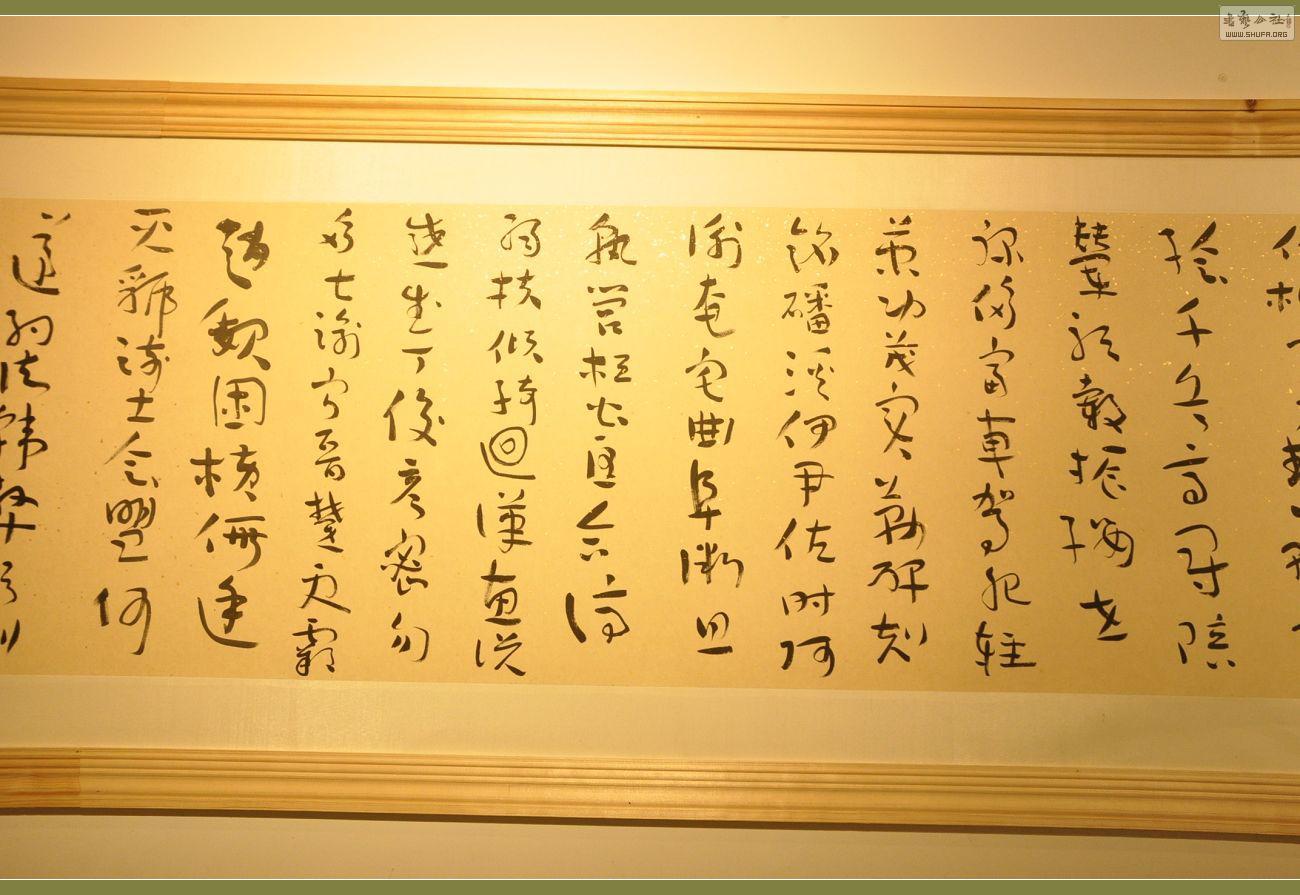 給千兵高冠陪
輦驅轂振纓世
祿侈富車駕肥輕
策功茂實勒碑刻
銘磻溪伊尹佐時阿
衡奄宅曲阜微旦
孰營桓公匡合濟
弱扶傾綺迴漢惠說
感武丁俊乂密勿
多士寔寧晉楚更霸
趙魏困橫假途
灭虢踐土會盟何
遵約法韓弊煩刑
書藝公社
WWW.SHUFA.ORG